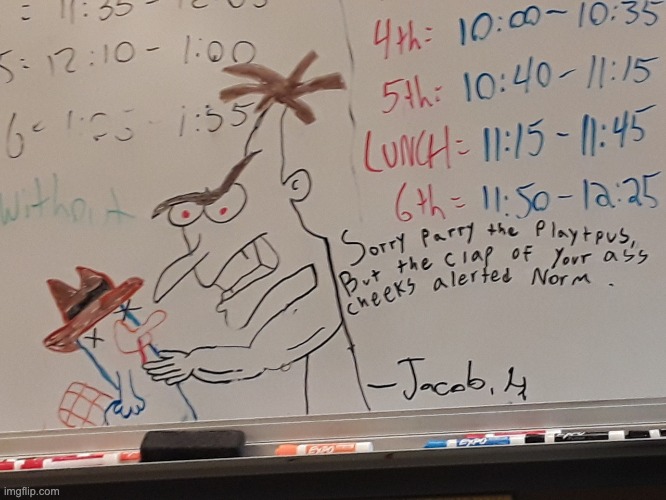 = 11:35 -
5= 12:10 - 1:00
6= - 1:55
without
4th= 10:00 - 10:35
5th: 10:40 - 11:15
LUNCH= 11:15 - 11:45
6th= 11:50 - 12:25
Sorry Parry the Playtpus,
But the clap of your ass
cheeks alerted Norm.
- Jacob,
EXPO
EXPO
imgflip.com